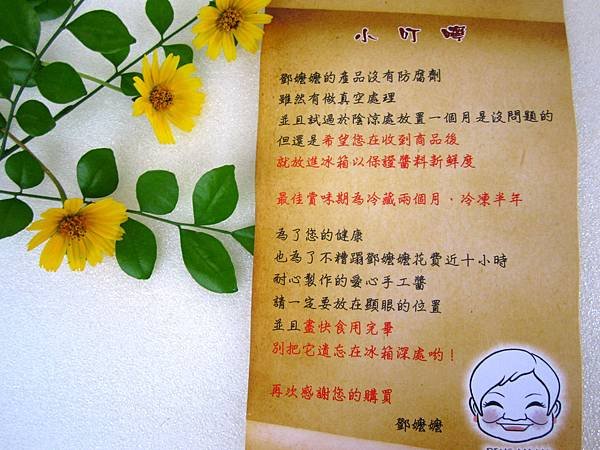 小叮嚀
鄧嬤嬤的產品沒有防腐劑
雖然有做真空處理
並且試過於陰涼處放置一個月是沒問題的
但還是希望您在收到商品後
就放進冰箱以保證醬料新鮮度
最佳賞味期為冷藏兩個月、冷凍半年
為了您的健康
也為了不糟蹋鄧嬤嬤花費近十小時
耐心製作的愛心手工醬
請一定要放在顯眼的位置
並且盡快食用完畢
別把它遺忘在冰箱深處喲!
再次感謝您的購買
鄧嬤嬤